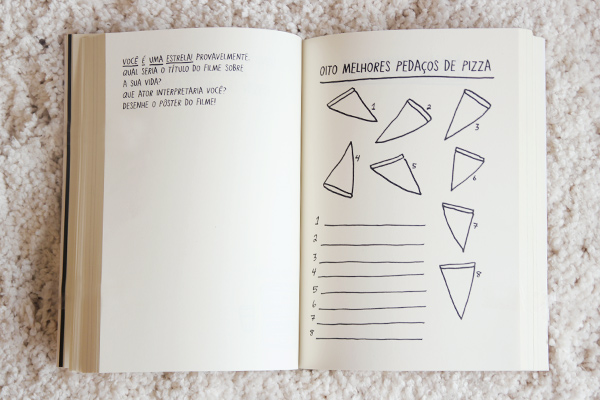 VOCÊ É UMA ESTRELA! PROVAVELMENTE.
QUAL SERIA O TÍTULO DO FILME SOBRE
A SUA VIDA?
QUE ATOR INTERPRETARIA VOCÊ?
DESENHE O PÔSTER DO FILME!
OITO MELHORES PEDAÇOS DE PIZZA
1
2
3
4
5
6
7
8
1
2
3
4
5
6
7
8